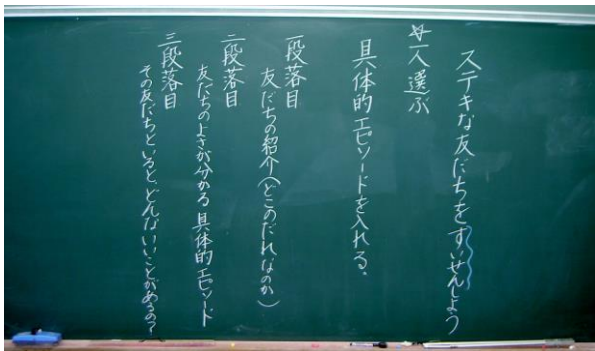 ステキな友だちをすいせんしよう
☆一人選ぶ
具体的エピソードを入れる。
一段落目
友だちの紹介(どこのだれなのか)
二段落目
友だちのよさが分かる具体的エピソード
三段落目
その友だちといると、どんないいことがあるの?